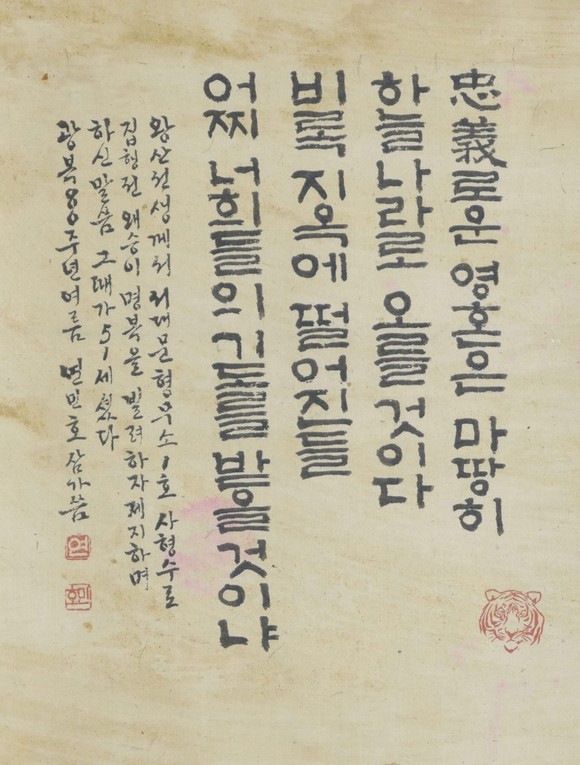 忠義로운 영혼은 마땅히
하늘나라로 오를 것이다
비록 지옥에 떨어진들
어찌 너희들의 기도를 받을 것이냐
왕산선생께서 서대문형무소 1호 사형수로
집형전 왜승이 명복을 빌려하자 제지하며
하신 말씀 그때가 51세셨다
광복80주년여름 연민호 삼가씀